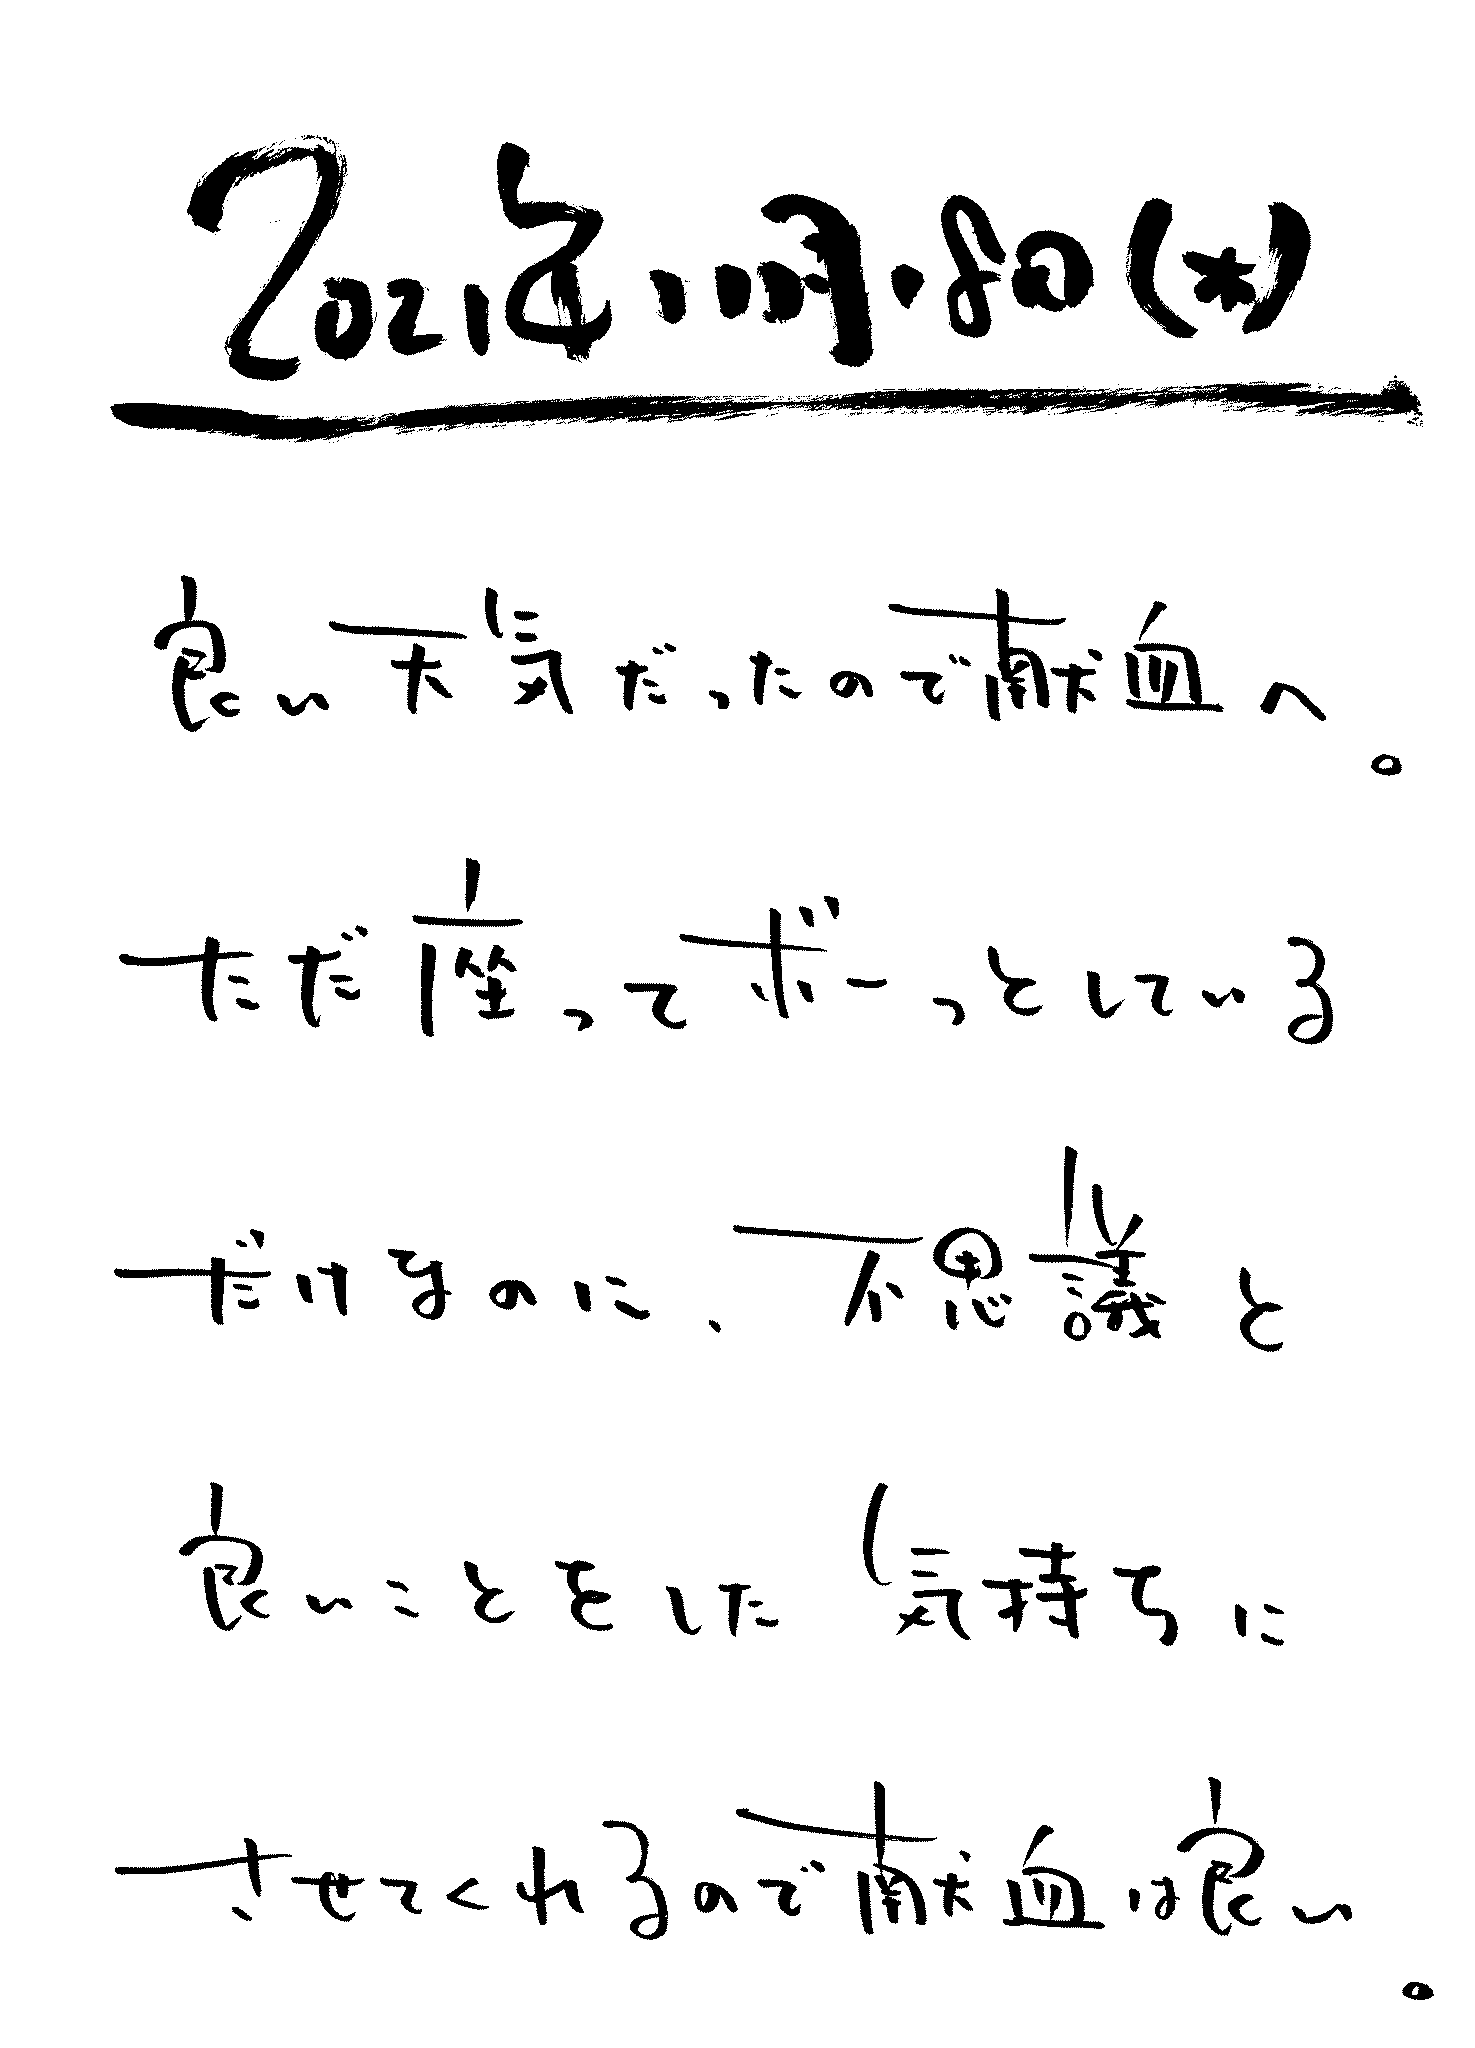 2021年、11月・8日(木)
良い天気だったので献血へ。
ただ座ってボーっとしている
だけなのに、不思議と
良いことをした気持ちに
させてくれるので献血は良い。